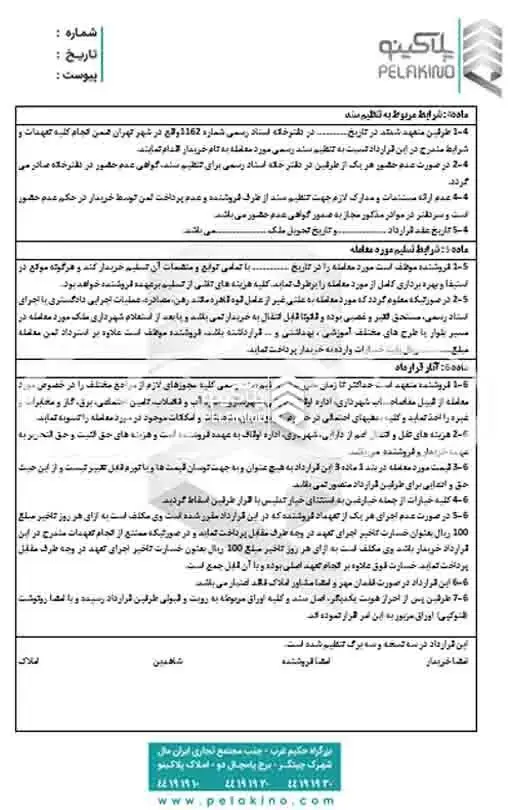 شماره :
تاریخ :
پیوست :
پلاکینو
PELAKINO
ماده4: شرایط مربوط به تنظیم سند
4-1 طرفین متعهد شدند در تاریخ............ در دفترخانه اسناد رسمی شماره 1162واقع در شهر تهران ضمن انجام کلیه تعهدات و
شرایط مندرج در این قرارداد نسبت به تنظیم سند رسمی مورد معامله به نام خریدار اقدام نمایند.
4-2 در صورت عدم حضور هر یک از طرفین در دفتر خانه اسناد رسمی برای تنظیم سند، گواهی عدم حضور در دفترخانه صادر می
گردد.
4-4 عدم ارائه مستندات و مدارک لازم جهت تنظیم سند از طرف فروشنده و عدم پرداخت ثمن توسط خریدار در حکم عدم حضور
است و سردفتر در موادر مذکور مجاز به صدور گواهی عدم حضور می باشد.
4-5 تاریخ عقد قرارداد .................. و تاریخ تحویل ملک .................. می باشد.
ماده5: شرایط تسلیم مورد معامله
5-1 فروشنده موظف است مورد معامله را در تاریخ ............ با تمامی توابع و منضمات آن تسلیم خریدار کند و هرگونه موانع در
استیفا و بهره برداری کامل از مورد معامله را برطرف نماید. کلیه هزینه های ناشی از تسلیم برعهده فروشنده خواهد بود.
5-2 در صورتیکه معلوم گردد که مورد معامله به علتی غیر از عامل قوه قاهره مانند رهن، مصادره، عملیات اجرایی دادگستری یا اجرای
اسناد رسمی، مستحق للغیر و غصبی بوده و قانونا قابل انتقال به خریدار نمی باشد و یا بعد از استعلام شهرداری ملک مورد معامله در
مسیر بلوار یا طرح های مختلف آموزشی ، بهداشتی و ... قرارداشته باشد، فروشنده موظف است علاوه بر استرداد ثمن معامله
مبلغ............ریال بابت خسارات وارده به خریدار پرداخت نماید.
ماده6: آثار قرارداد
6-1 فروشنده متعهد است حداکثر تا زمان تنظیم سند رسمی کلیه مجوزهای لازم از مراجع مختلف را در خصوص مورد
معامله از قبیل مفاصاحساب شهرداری، اداره آب و فاضلاب، تامین اجتماعی، برق، گاز و مخابرات و
غیره را اخذ نماید و کلیه بدهیهای احتمالی و امکانات موجود در مورد معامله را تسویه نماید.
6-2 هزینه های نقل و انتقال اعم از دارایی، شهرداری، اداره اوقاف به عهده فروشنده است و هزینه های حق الثبت و حق التحریر به
عهده خریدار و فروشنده می باشد.
6-3 قیمت مورد معامله در بند 1 ماده 3 این قرارداد به هیچ عنوان و به جهت نوسان قیمت ها و یا تورم قابل تغییر نیست و از این حیث
حق و ادعایی برای طرفین قرارداد متصور نمی باشد.
6-4 کلیه خیارات از جمله خیارغبن به استثنای خیار تدلیس با اقرار طرفین اسقاط گردید.
6-5 در صورت عدم اجرای هر یک از تعهداد فروشنده که در این قرارداد مقرر شده است وی مکلف است به ازای هر روز تاخیر مبلغ
100 ریال بعنوان خسارت تاخیر اجرای تعهد در وجه طرف مقابل پرداخت نماید و در صورتیکه ممتنع از انجام تعهدات مندرج در این
قرارداد خریدار باشد وی مکلف است به ازای هر روز تاخیر مبلغ 100 ریال بعنوان خسارت تاخیر اجرای تعهد در وجه طرف مقابل
پرداخت نماید. خسارت فوق علاوه بر انجام تعهد اصلی بوده و با آن قابل جمع است.
6-6 این قرارداد در صورت فقدان مهر و امضا مشاور املاک فاقد اعتبار می باشد.
6-7 طرفین پس از احراز هویت یکدیگر، اصل سند و کلیه اوراق مربوطه به رویت و قبولی طرفین قرارداد رسیده و با امضا رونوشت
(فتوکپی) اوراق مزبور به این امر اقرار نموده اند.
این قرارداد در سه نسخه و سه برگ تنظیم شده است.
امضا خریدار امضا فروشنده شاهدین املاک
بزرگراه حکیم غرب - جنب مجتمع تجاری ایران مال
شهرک چیتگر - برج پامچال دو - املاک پلاکینو
۴۴۱۹۱۹۱۰ ۴۴۱۹۱۹۲۰ ۴۴۱۹۱۹۳۰
www.pelakino.com